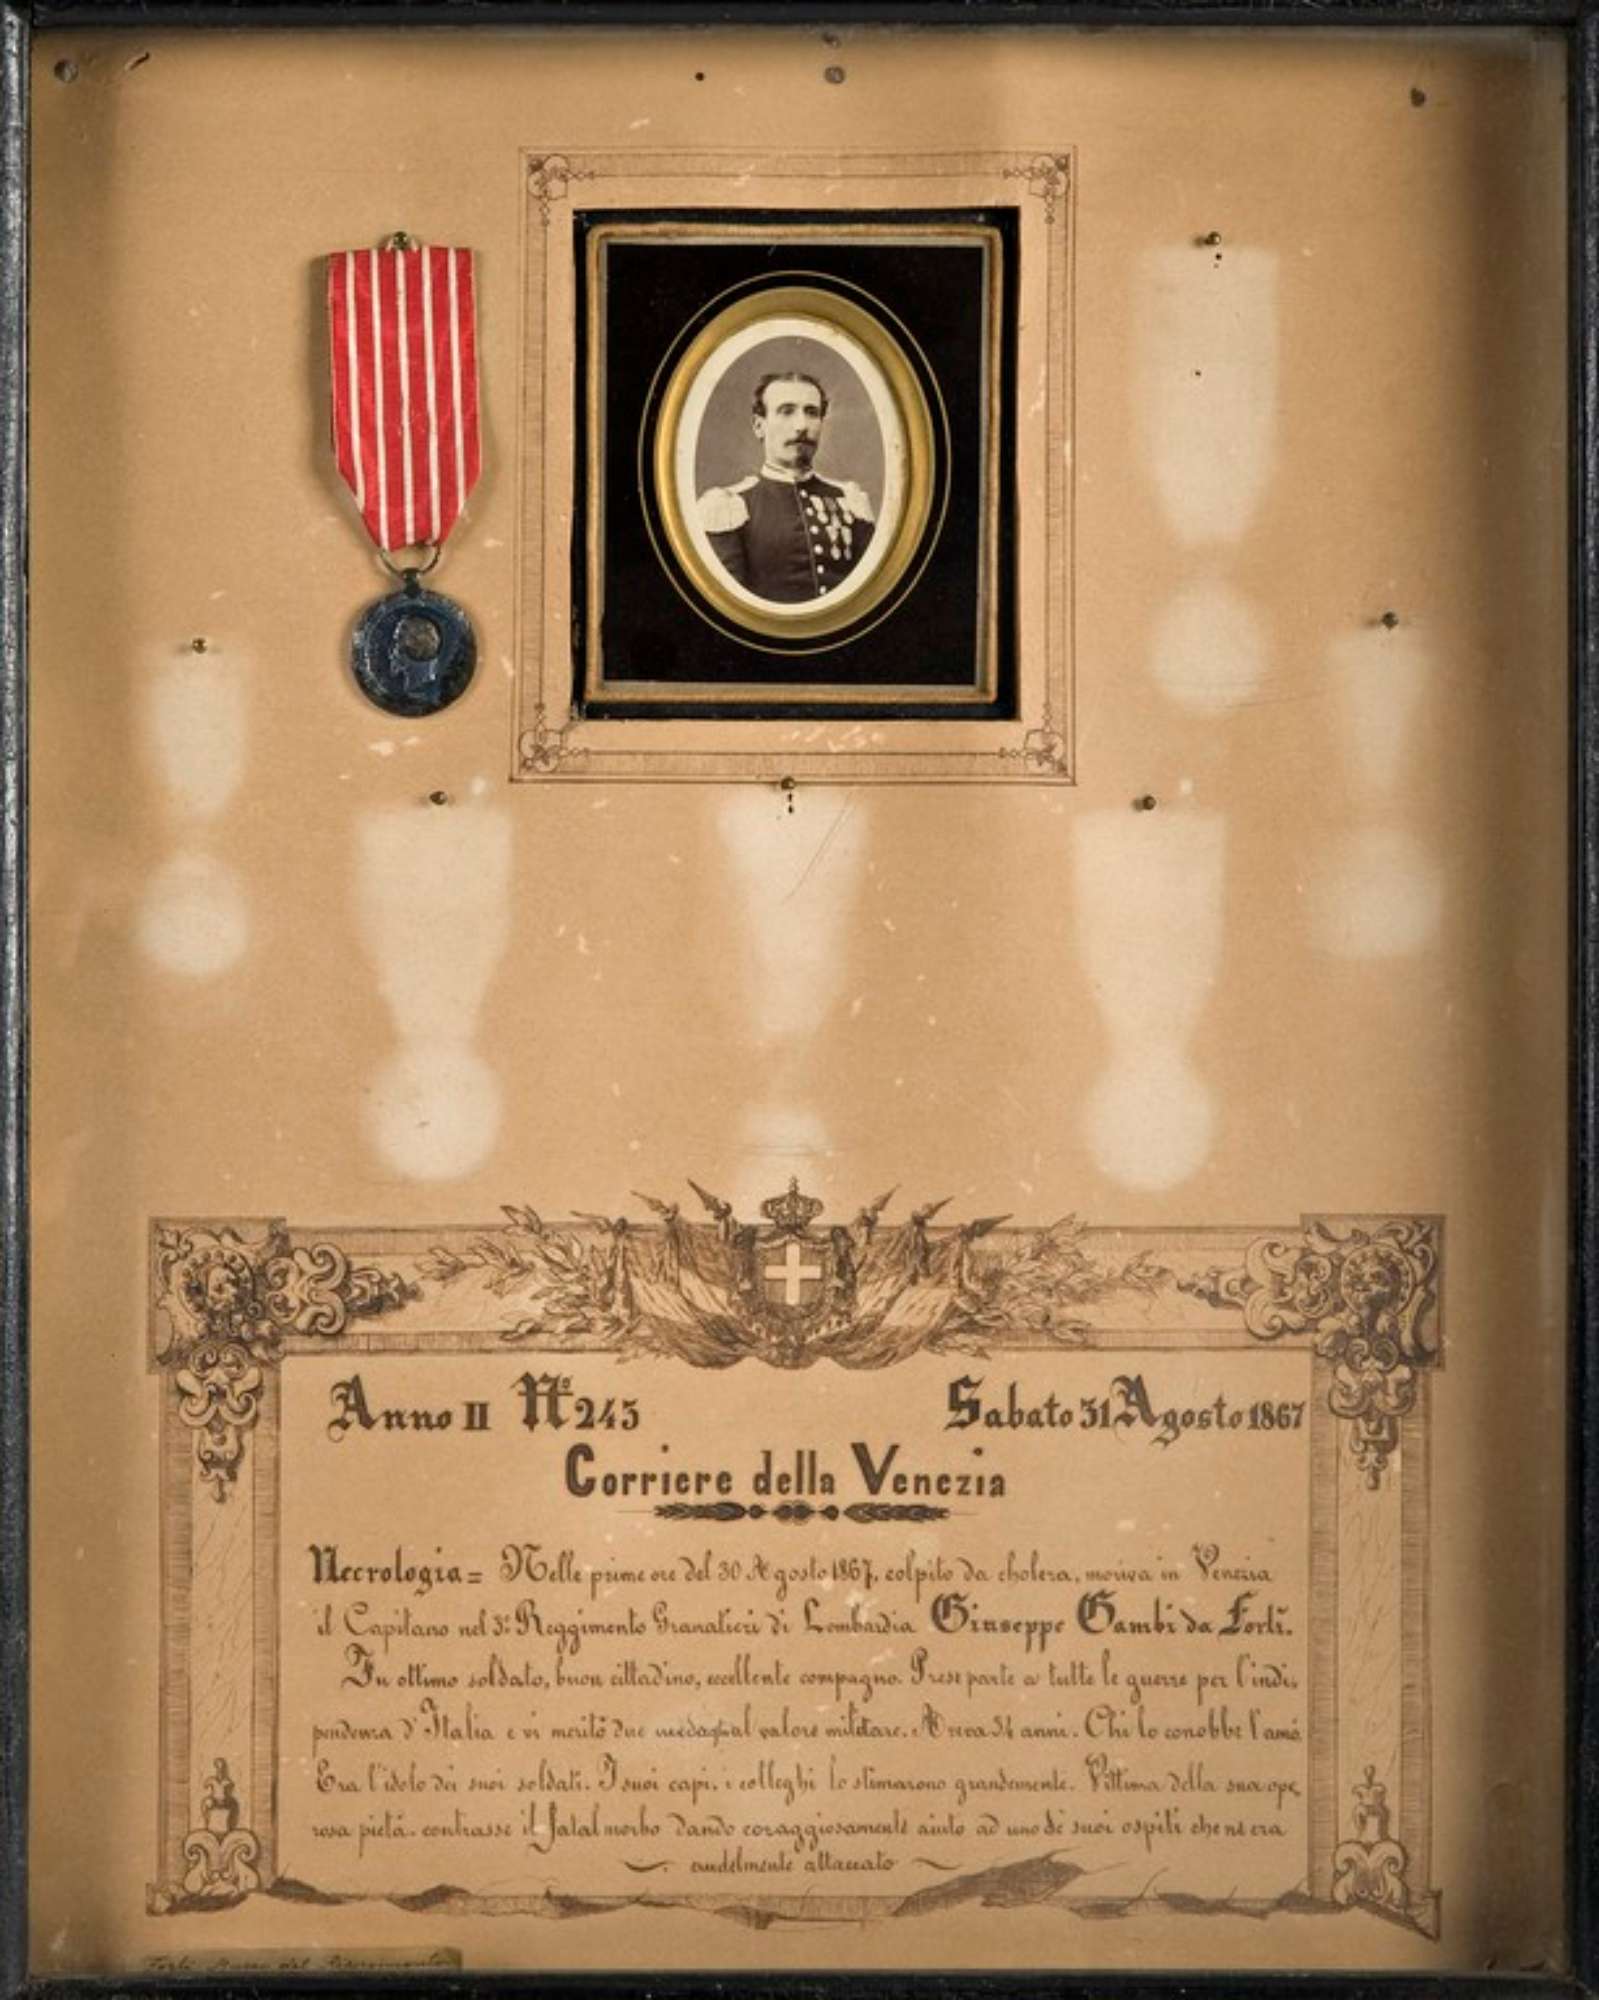 Anno II Nº 243
Sabato 31 Agosto 1867
Corriere della Venezia
Necrologia = Nelle prime ore del 30 Agosto 1867, colpito da cholera, moriva in Venezia
il Capitano nel 3º Reggimento Granatieri di Lombardia Giuseppe Gambi da Forlì.
Fu ottimo soldato, buon cittadino, eccellente compagno. Prese parte a tutte le guerre per l'indi-
pendenza d'Italia e vi meritò due al valore militare. Aveva 34 anni. Chi lo conobbe l'amò
Era l'idolo dei suoi soldati. I suoi capi, i colleghi lo stimarono grandemente. Vittima della sua ope
rosa pietà. contrasse il fatal morbo dando coraggiosamente aiuto ad uno de suoi ospiti che ne era
crudelmente attaccato
Forlì Museo del Risorgimento